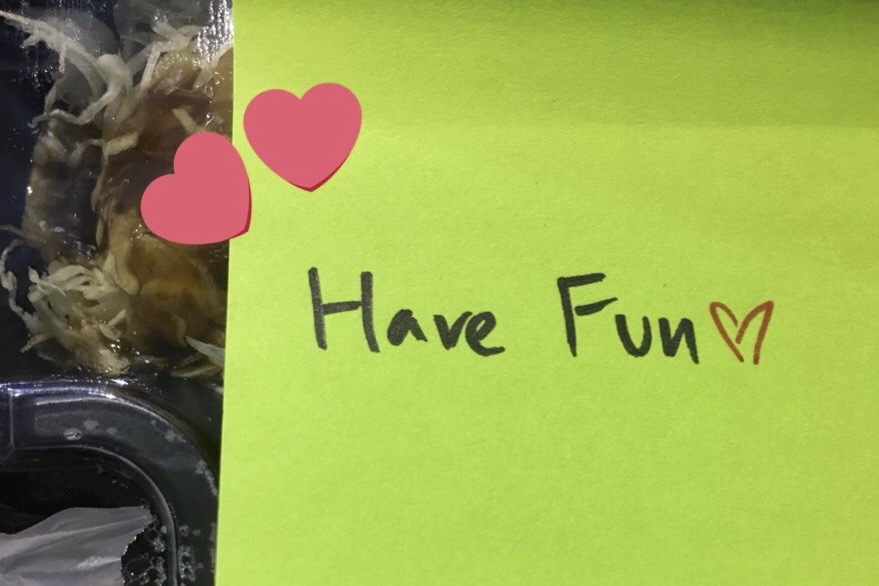 Have Fun♡